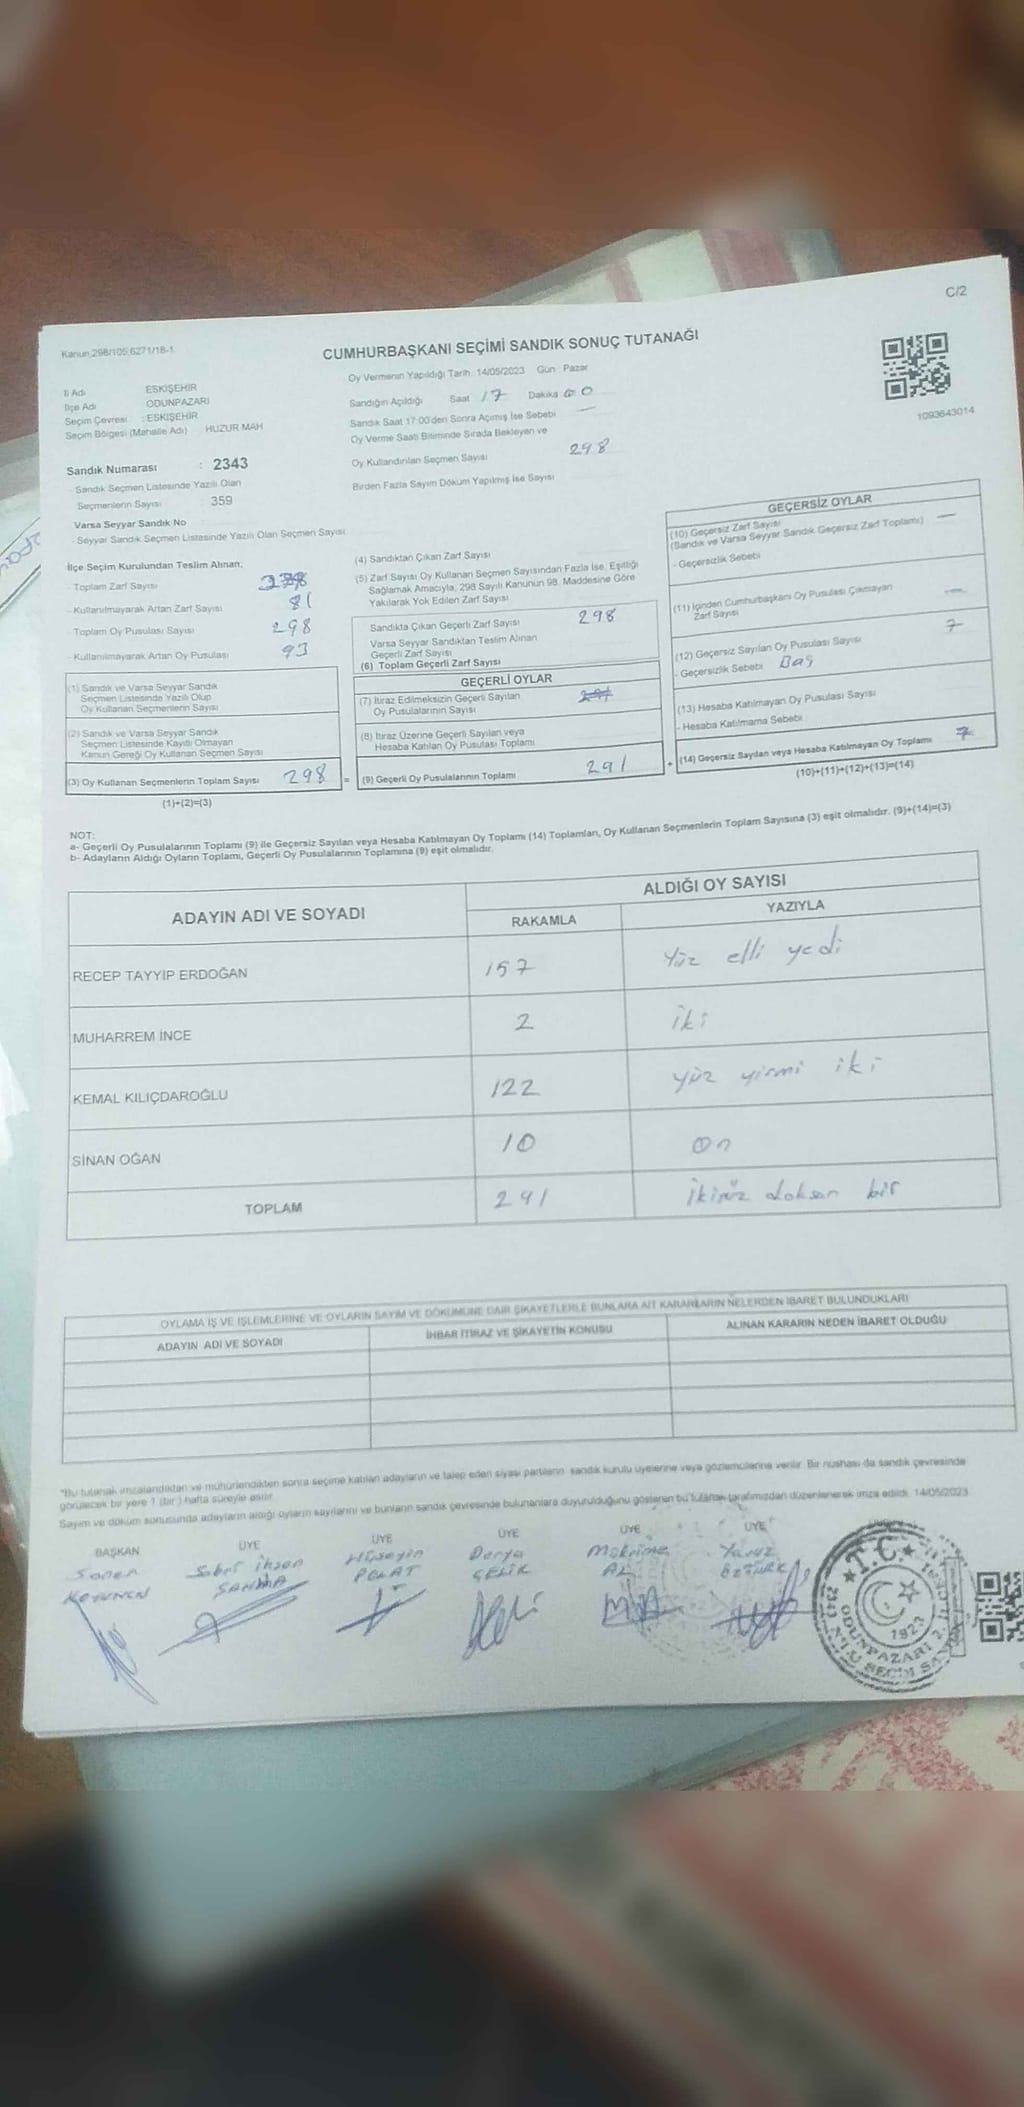 C/2
Kanun:298/105,6271/18-1
CUMHURBAŞKANI SEÇİMİ SANDIK SONUÇ TUTANAĞI
İl Adı ESKİŞEHİR
İlçe Adı ODUNPAZARI
Seçim Çevresi : ESKİŞEHİR
Seçim Bölgesi (Mahalle Adı) : HUZUR MAH
Oy Vermenin Yapıldığı Tarih :14/05/2023 Gün : Pazar
Sandığın Açıldığı Saat 17 Dakika 00
Sandık Saat 17:00'den Sonra Açımış İse Sebebi —
Oy Verme Saati Bitiminde Sırada Bekleyen ve
Oy Kullandırılan Seçmen Sayısı 298
Birden Fazla Sayım Döküm Yapılmış İse Sayısı
1093643014
Sandık Numarası : 2343
- Sandık Seçmen Listesinde Yazılı Olan
Seçmenlerin Sayısı : 359
Varsa Seyyar Sandık No
- Seyyar Sandık Seçmen Listesinde Yazılı Olan Seçmen Sayısı
İlçe Seçim Kurulundan Teslim Alınan;
- Toplam Zarf Sayısı
- Kullanılmayarak Artan Zarf Sayısı 81
- Toplam Oy Pusulası Sayısı 298
- Kullanılmayarak Artan Oy Pusulası 93
(1) Sandık ve Varsa Seyyar Sandık
Seçmen Listesinde Yazılı Olup
Oy Kullanan Seçmenlerin Sayısı
(2) Sandık ve Varsa Seyyar Sandık
Seçmen Listesinde Kayıtlı Olmayan
Kanun Gereği Oy Kullanan Seçmen Sayısı
(3) Oy Kullanan Seçmenlerin Toplam Sayısı 298 =
(1)+(2)=(3)
(4) Sandıktan Çıkan Zarf Sayısı
(5) Zarf Sayısı Oy Kullanan Seçmen Sayısından Fazla İse, Eşitliği
Sağlamak Amacıyla, 298 Sayılı Kanunun 98. Maddesine Göre
Yakılarak Yok Edilen Zarf Sayısı
Sandıkta Çıkan Geçerli Zarf Sayısı 298
Varsa Seyyar Sandıktan Teslim Alınan
Geçerli Zarf Sayısı
(6) Toplam Geçerli Zarf Sayısı
GEÇERLİ OYLAR
(7) İtiraz Edilmeksizin Geçerli Sayılan
Oy Pusulalarının Sayısı
(8) İtiraz Üzerine Geçerli Sayılan veya
Hesaba Katılan Oy Pusulası Toplamı
(9) Geçerli Oy Pusulalarının Toplamı 291 +
GEÇERSİZ OYLAR
(10) Geçersiz Zarf Sayısı —
(Sandık ve Varsa Seyyar Sandık Geçersiz Zarf Toplamı)
- Geçersizlik Sebebi
(11) İçinden Cumhurbaşkanı Oy Pusulası Çıkmayan —
Zarf Sayısı
(12) Geçersiz Sayılan Oy Pusulası Sayısı 7
- Geçersizlik Sebebi Boş
(13) Hesaba Katılmayan Oy Pusulası Sayısı
- Hesaba Katılmama Sebebi
(14) Geçersiz Sayılan veya Hesaba Katılmayan Oy Toplamı 7
(10)+(11)+(12)+(13)=(14)
NOT:
a- Geçerli Oy Pusulalarının Toplamı (9) ile Geçersiz Sayılan veya Hesaba Katılmayan Oy Toplamı (14) Toplamları, Oy Kullanan Seçmenlerin Toplam Sayısına (3) eşit olmalıdır. (9)+(14)=(3)
b- Adayların Aldığı Oyların Toplamı, Geçerli Oy Pusulalarının Toplamına (9) eşit olmalıdır.
ADAYIN ADI VE SOYADI ALDIĞI OY SAYISI
RAKAMLA YAZIYLA
RECEP TAYYİP ERDOĞAN 157 Yüz elli yedi
MUHARREM İNCE 2 iki
KEMAL KILIÇDAROĞLU 122 yüz yirmi iki
SİNAN OĞAN 10 on
TOPLAM 291 ikiyüz doksan bir
OYLAMA İŞ VE İŞLEMLERİNE VE OYLARIN SAYIM VE DÖKÜMÜNE DAİR ŞİKAYETLERLE BUNLARA AİT KARARLARIN NELERDEN İBARET BULUNDUKLARI
ADAYIN ADI VE SOYADI İHBAR İTİRAZ VE ŞİKAYETİN KONUSU ALINAN KARARIN NEDEN İBARET OLDUĞU
"Bu tutanak imzalandıktan ve mühürlendikten sonra seçime katılan adayların ve talep eden siyasi partilerin sandık kurulu üyelerine veya gözlemcilerine verilir. Bir nüshası da sandık çevresinde
görülecek bir yere 1 (bir) hafta süreyle asılır.
Sayım ve döküm sonusunda adayların aldığı oyların sayılarını ve bunların sandık çevresinde bulunanlara duyurulduğunu gösteren bu tutanak tarafımızdan düzenlenerek imza edildi. 14/05/2023
BAŞKAN ÜYE ÜYE ÜYE ÜYE ÜYE
Sabri ihsan Hüseyin Derya Yavuz
POLAT ÇELİK ÖZTÜRK
T.C.
1923
ODUNPAZARI 2.
2343 N'LU SEÇİM